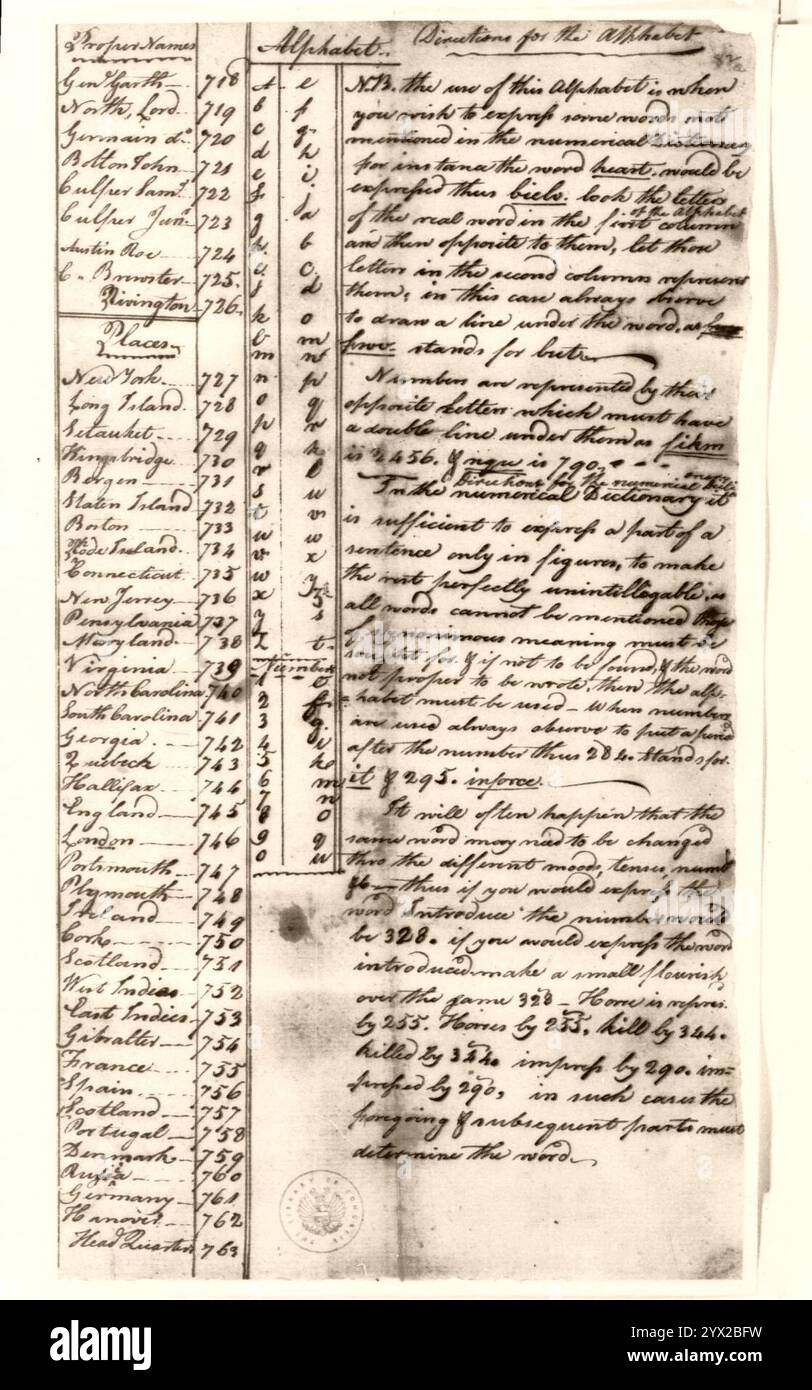 Proper Names
Gen.l Garth 718
North, Lord 719
Germain do. 720
Bolton John 721
Culper Sam.l 722
Culper Jun.r 723
Austin Roe 724
C. Brewster 725.
Rivington 726
Places
New York 727
Long Island 728
Setauket 729
Kingsbridge 730
Bergen 731
Staten Island 732
Boston 733
Rode Island 734
Connecticut 735
New Jersey 736
Pensylvania 737
Maryland 738
Virginia 739
North Carolina 740
South Carolina 741
Georgia 742
Quebeck 743
Hallifax 744
England 745
London 746
Portsmouth 747
Plymouth 748
Ireland 749
Cork 750
Scotland 751
West Indies 752
East Indies 753
Gibralter 754
France 755
Spain 756
Scotland 757
Portugal 758
Denmark 759
Rusia 760
Germany 761
Hanover 762
Head Quarters 763
Alphabet
a e
b f
c g
d h
e i
f j
g a
h b
i c
j d
k o
l m
m n
n p
o q
p r
q k
r l
s u
t v
u w
v x
w y
x z
y s
z t
Numbers
1 e
2 f
3 g
4 i
5 k
6 m
7 n
8 o
9 q
0 u
Directions for the Alphabet
N.B. the use of this Alphabet is when
you wish to express some words not
mentioned in the numerical Dictionary
for instance the word heart. would be
expressed thus bielv. look the letters
of the real word in the first column of the Alphabet
and then opposite to them, let those
letters in the second column represent
them, in this case always observe
to draw a line under the word, as
fwv. stands for but
Numbers are represented by their
opposite Letters which must have
a double line under them as fikm
is 2456. & nqu is 790.
Directions for the numerical
In the numerical Dictionary it
is sufficient to express a part of a
sentence only in figures, to make
the rest perfectly unintillegable, as
all words cannot be mentioned those
of synonimous meaning must be
sought for, & if not to be found, & the word
not proper to be wrote, then the alp-
habet must be used - when numbers
are used always observe to put a period
after the number thus 284. stands for.
it & 295. inforce.
It will often happen that the
same word may need to be changed
thro the different moods, tenses, numb
thus if you would express the
word Introduce the number would
be 328. if you would express the word
introduced make a small flourish
over the same 328 - Horse is repres.
by 255. Horses by 255. kill by 344.
killed by 344. impress by 290. im-
pressed by 290, in such cases the
foregoing & subsequent parts must
determine the word.
THE LIBRARY OF CONGRESS
alamy
Image ID: 2YX2BFW
www.alamy.com